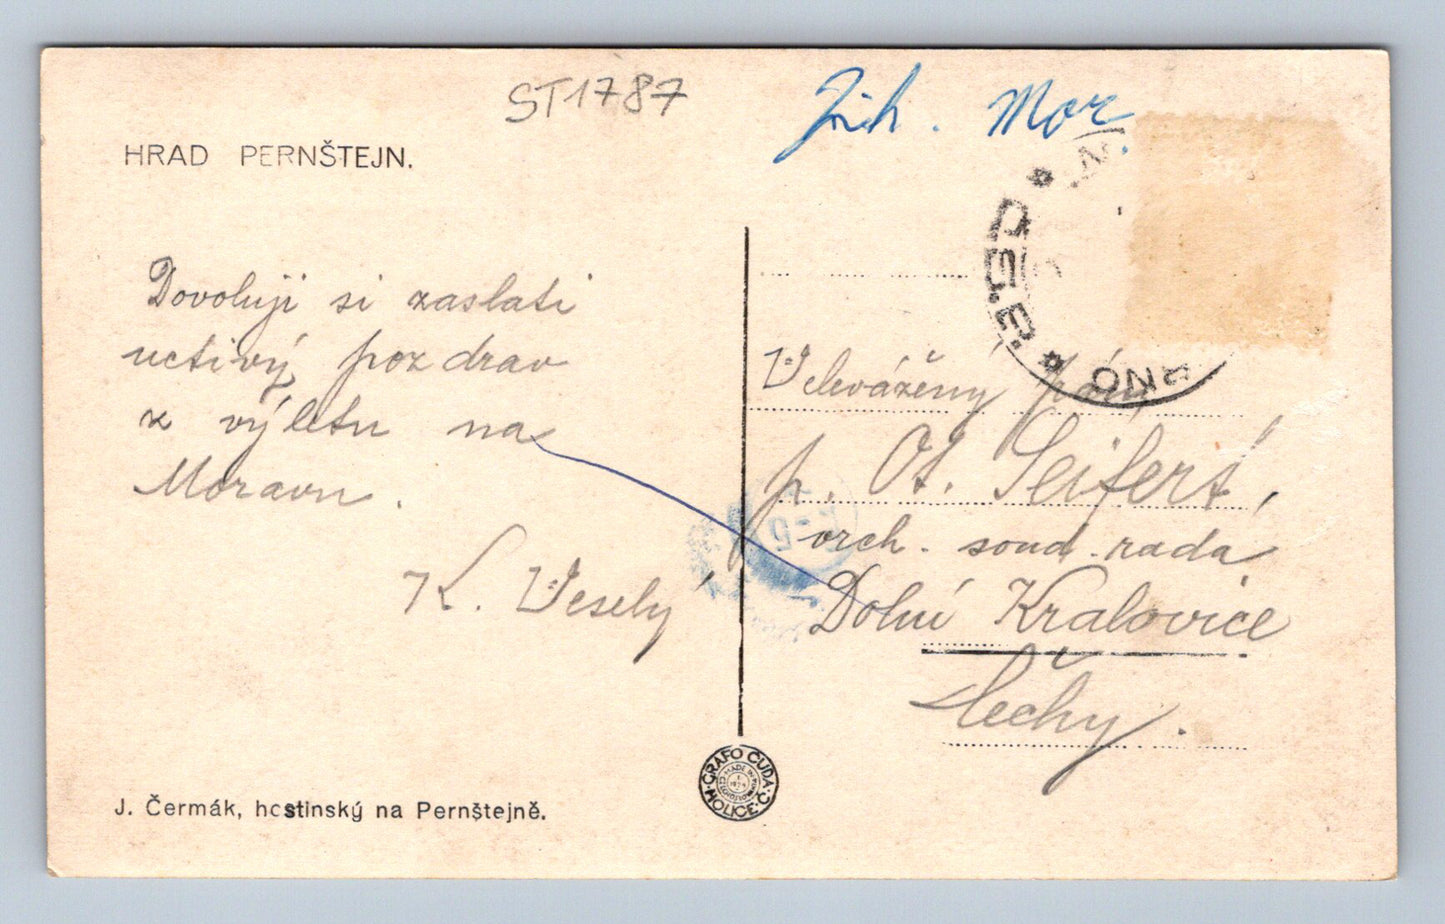 ST1787
Jih. Mor.
HRAD PERNŠTEJN.
Dovoluji si zaslati
uctivý pozdrav
z výletu na
Moravu.
K. Veselý
Velevážený pán
p. Ot. Seifert,
vrch. soud. rada
Dolní Kralovice
Čechy.
GRAFO ČUDA HOLICE Č.
J. Čermák, hostinský na Pernštejně.